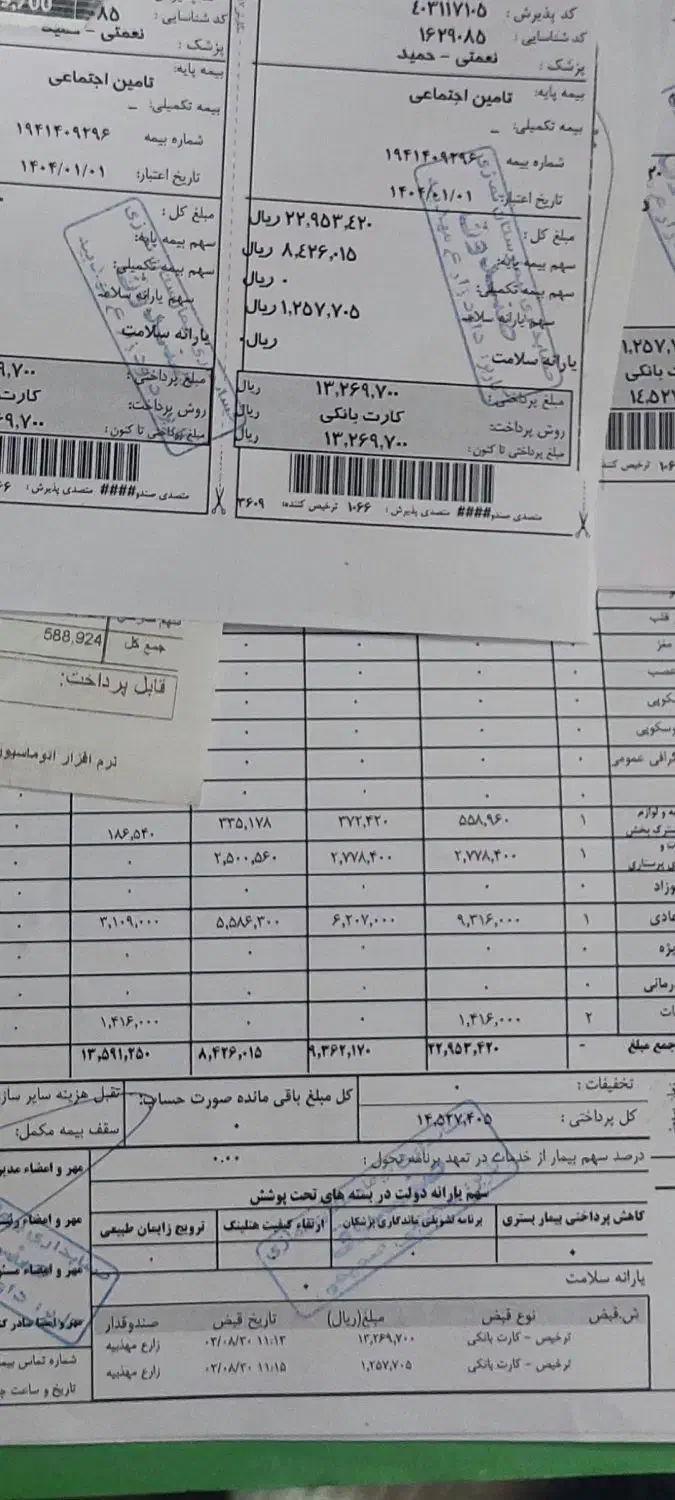 کد پذیرش : ۴۰۳۱۱۷۱۰۵
کد شناسایی : ۱۶۲۹۰۸۵
پزشک : نعمتی - حمید
بیمه پایه: تامین اجتماعی
بیمه تکمیلی: –
شماره بیمه ۱۹۴۱۴۰۹۲۹۶
تاریخ اعتبار: ۱۴۰۴/۰۱/۰۱
مبلغ کل : ۲۲,۹۵۳,۴۲۰ ریال
سهم بیمه پایه: ۸,۴۲۶,۰۱۵ ریال
سهم بیمه تکمیلی: ۰ ریال
سهم یارانه سلامت ۱,۲۵۷,۷۰۵ ریال
یارانه سلامت ریال
مبلغ پرداختی : ۱۳,۲۶۹,۷۰۰ ریال
روش پرداخت: کارت بانکی ریال
مبلغ پرداختی تا کنون: ۱۳,۲۶۹,۷۰۰ ریال
متصدی صندو#### متصدی پذیرش : ۱۰۶۶ ترخیص کننده: ۳۶۰۹
کد شناسایی : ۰۸۵
پزشک : نعمتی -
بیمه پایه: تامین اجتماعی
بیمه تکمیلی: –
شماره بیمه ۱۹۴۱۴۰۹۲۹۶
تاریخ اعتبار: ۱۴۰۴/۰۱/۰۱
مبلغ کل :
سهم بیمه پایه:
سهم بیمه تکمیلی:
سهم یارانه سلامت
یارانه سلامت
مبلغ پرداختی : ۹,۷۰۰
روش پرداخت: کارت
مبلغ پرداختی تا کنون: ۶۹,۷۰۰
متصدی صندو#### متصدی پذیرش : ۶۶
۱,۲۵۷,۷
ت بانکی
۱۴,۵۲۷
۱۰۶ ترخیص کنند
جمع کل 588,924
قابل پرداخت:
نرم افزار اتوماسیون
قلب
مغز
عصب ۰ ۰ ۰ ۰
کوپی ۰ ۰ ۰ ۰
وسکوپی ۰ ۰ ۰ ۰
گرافی عمومی ۰ ۰ ۰ ۰
۰ ۰ ۰ ۰
ه و لوازم
ترک بخش ۱ ۵۵۸,۹۶۰ ۳۷۲,۴۲۰ ۳۳۵,۱۷۸ ۱۸۶,۵۴۰ ۰
ت و
ی پرستاری ۱ ۲,۷۷۸,۴۰۰ ۲,۷۷۸,۴۰۰ ۲,۵۰۰,۵۶۰ ۰ ۰
وزاد ۰ ۰ ۰ ۰ ۰ ۰
عادی ۱ ۹,۳۱۶,۰۰۰ ۶,۲۰۷,۰۰۰ ۵,۵۸۶,۳۰۰ ۳,۱۰۹,۰۰۰ ۰
یژه ۰ ۰ ۰ ۰ ۰ ۰
رمانی ۰ ۰ ۰ ۰ ۰ ۰
ات ۲ ۱,۴۱۶,۰۰۰ ۰ ۰ ۱,۴۱۶,۰۰۰ ۰
جمع مبلغ - ۲۲,۹۵۳,۴۲۰ ۹,۳۶۲,۱۷۰ ۸,۴۲۶,۰۱۵ ۱۳,۵۹۱,۲۵۰
تخفیفات : ۰
کل پرداختی : ۱۴,۵۲۷,۴۰۵
کل مبلغ باقی مانده صورت حساب: ۰
تقبل هزینه سایر ساز
سقف بیمه مکمل:
درصد سهم بیمار از خدمات در تعهد برنامه تحول : ۰.۰۰
سهم یارانه دولت در بسته های تحت پوشش
کاهش پرداختی بیمار بستری برنامه تشویقی ماندگاری پزشکان ارتقاء کیفیت هتلینگ ترویج زایمان طبیعی
۰ ۰ ۰
یارانه سلامت ۰
ش.قبض نوع قبض مبلغ(ریال) تاریخ قبض صندوقدار
ترخیص - کارت بانکی ۱۳,۲۶۹,۷۰۰ ۰۳/۰۸/۲۰ ۱۱:۱۳ زارع مهذبیه
ترخیص - کارت بانکی ۱,۲۵۷,۷۰۵ ۰۳/۰۸/۲۰ ۱۱:۱۵ زارع مهذبیه
مهر و امضاء مدیر
مهر و امضاء
مهر و امضاء
شماره تماس بیما
تاریخ و ساعت چ